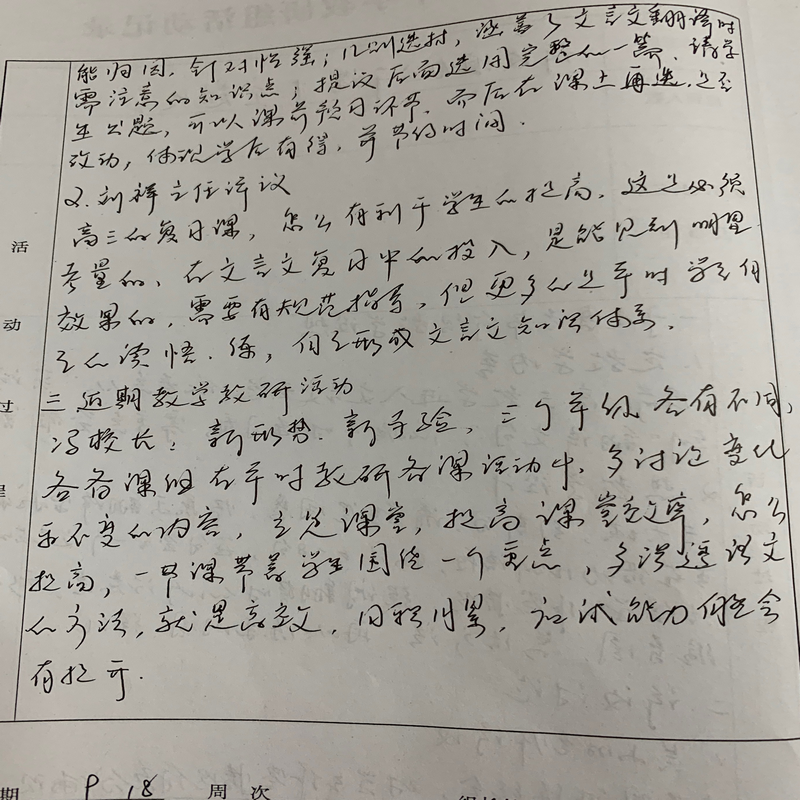 能归因，针对性强；从则选材，涵盖了文言文翻译时
需注意的知识点；提议后面选用完整的一篇，请学
生出题，可以课前预习环节，而后在课上再选，
改动，体现学后有得，并节约时间．
2.刘祥主任评议
高三的复习课，怎么有利于学生的提高，这是必须
考量的，在文言文复习中的投入，是能见到明显
效果的，需要有规范指导，但更多的是平时学
读悟、练，形成文言文知识体系．
三 近期教学教研活动
冯校长：新形势、新，三个年级各有不同，
各备课组在平时教研备课活动中，多讨论变化
和不变的内容，课堂，提高课堂效率，怎么
提高，一节课带着学生围绕一个重点，多渗透语文
的方法，就是高效，日积月累，应试能力会
有提升．
活
动
过
程
期 9 18 周次